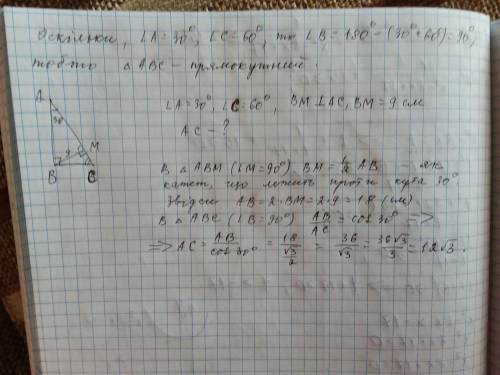 Оскільки, ∠A=30°, ∠C=60°, то ∠B=180°-(30°+60°)=90°,
тобто △ABC - прямокутний.
∠A=30°, ∠C=60°, BM⊥AC, BM=9 см
AC-?
A
30°
9
M
B
C
В △ABM (∠M=90°) BM=1/2 AB - як
катет, що лежить проти кута 30°.
Звідси AB=2·BM=2·9=18 (см)
В △ABC (∠B=90°) AB/AC=cos30° =>
=> AC=AB/cos30°=18/(√3/2)=36/√3=36√3/3=12√3.